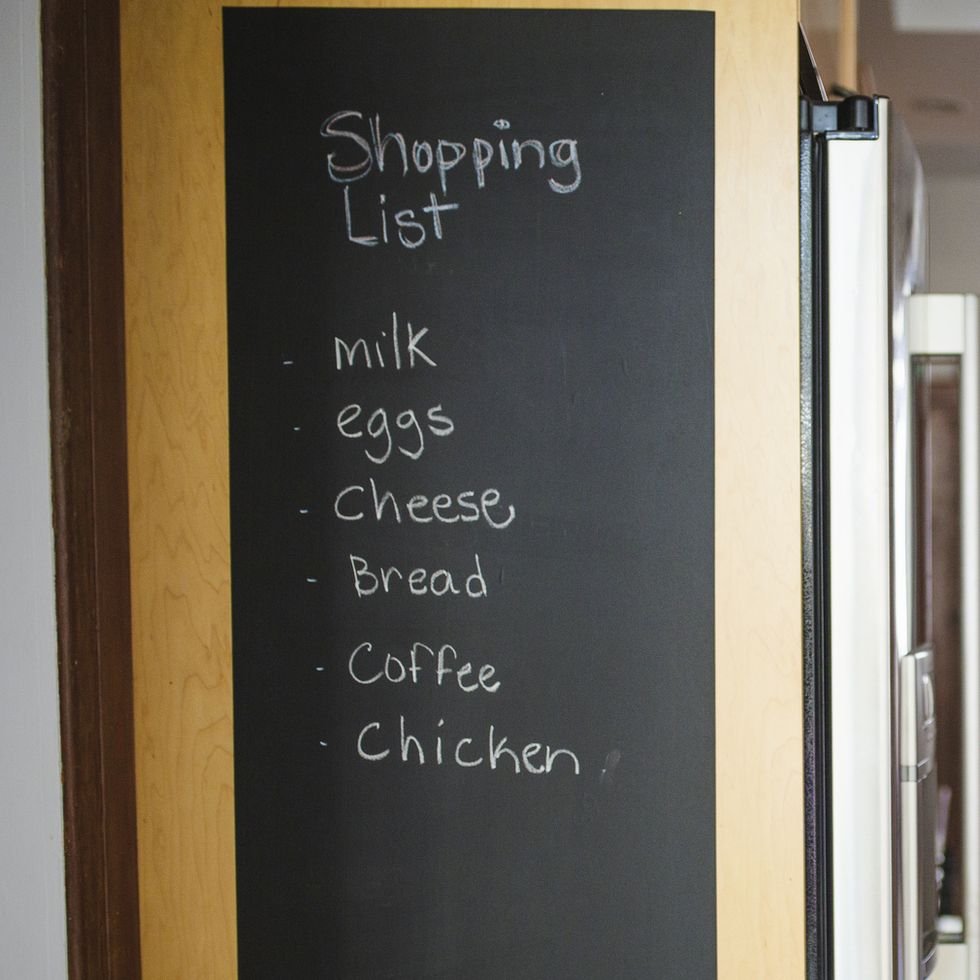 Shopping
List
- milk
- eggs
- Cheese
- Bread
- Coffee
- Chicken